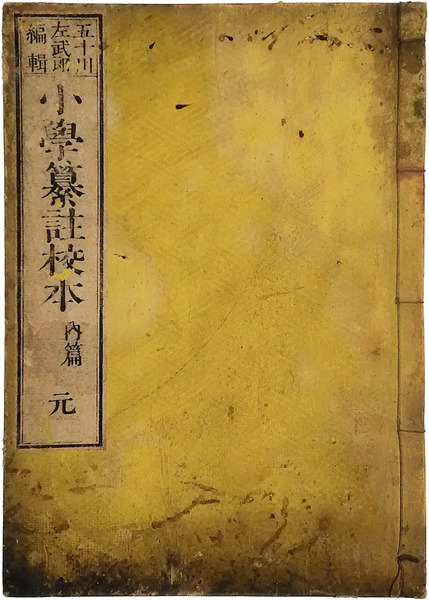 五十川
左武郎
編輯
小學纂註校本 内篇 元